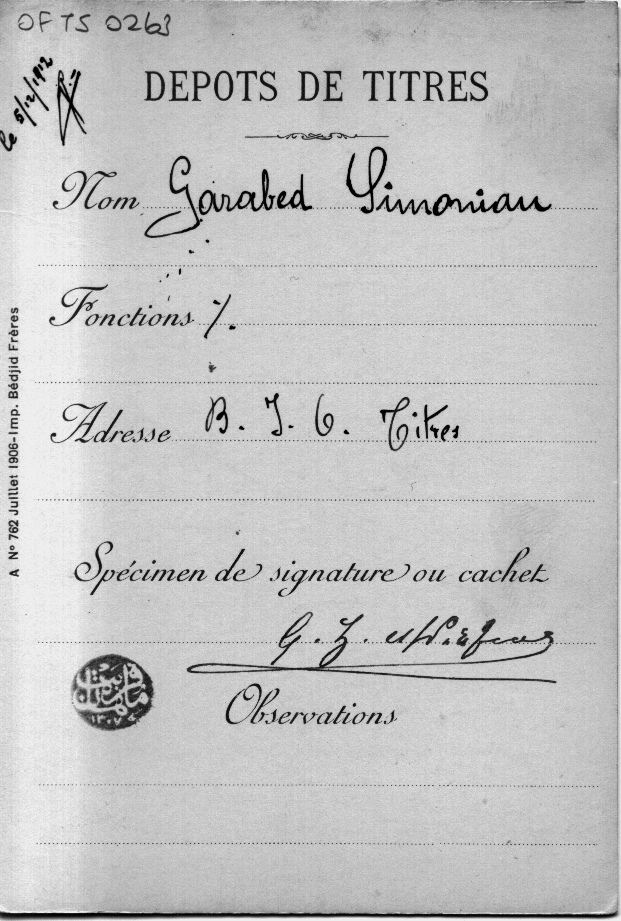 OFTS 0263
le 5/12/1912
DEPOTS DE TITRES
Nom Garabed Simonian
Fonctions ⁒.
Adresse B. I. O. Titres
A Nº 762 Juillet 1906-Imp. Bédjid Frères
Spécimen de signature ou cachet
Observations